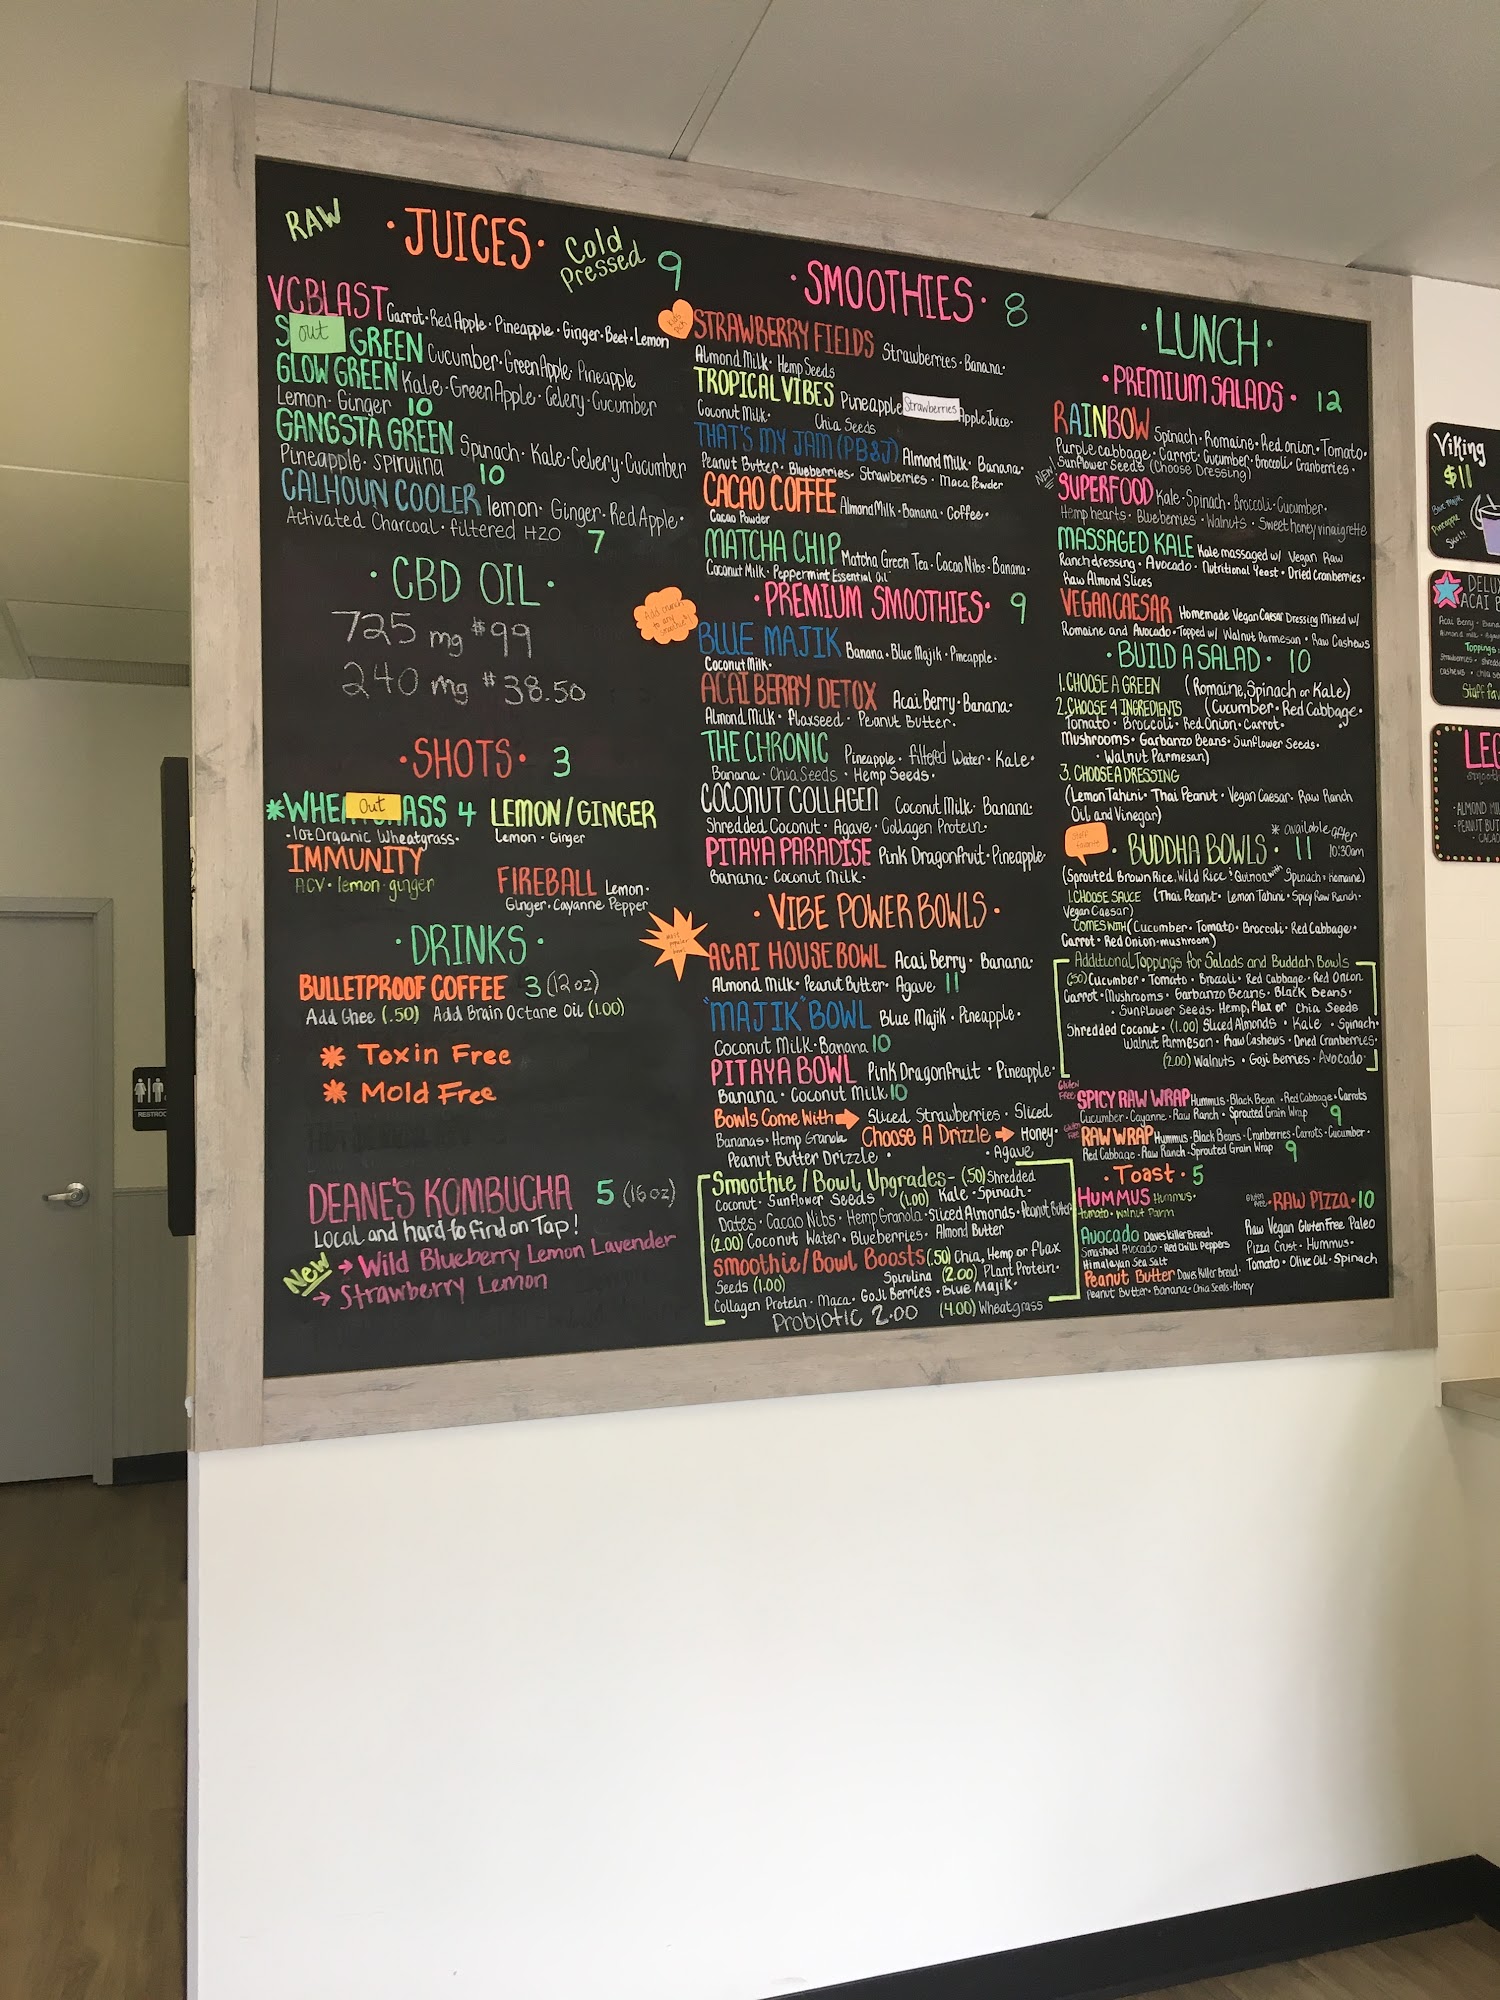 RAW
· JUICES ·
Cold
Pressed
9
VGBLAST Carrot · Red Apple · Pineapple · Ginger · Beet · Lemon
out GREEN Cucumber · Green Apple · Pineapple
GLOW GREEN Kale · Green Apple · Celery · Cucumber
Lemon · Ginger 10
GANGSTA GREEN Spinach · Kale · Celery · Cucumber
Pineapple · spirulina 10
CALHOUN COOLER lemon · Ginger · Red Apple ·
Activated Charcoal · filtered H2O 7
· CBD OIL ·
725 mg $99
240 mg $38.50
· SHOTS · 3
*WHE Out ASS 4
· 1oz Organic Wheatgrass ·
LEMON / GINGER
Lemon · Ginger
IMMUNITY
ACV · lemon · ginger
FIREBALL Lemon ·
Ginger · Cayanne Pepper
· DRINKS ·
BULLETPROOF COFFEE 3 (12 oz)
Add Ghee (.50) Add Brain Octane Oil (1.00)
* Toxin Free
* Mold Free
DEANE'S KOMBUCHA 5 (16 oz)
Local and hard to find on Tap!
New → Wild Blueberry Lemon Lavender
→ Strawberry Lemon
· SMOOTHIES · 8
STRAWBERRY FIELDS Strawberries · Banana ·
Almond Milk · Hemp Seeds
TROPICAL VIBES Pineapple Strawberries Apple Juice ·
Coconut Milk · Chia Seeds
THAT'S MY JAM (PB&J) Almond Milk · Banana ·
Peanut Butter · Blueberries · Strawberries · Maca Powder
CACAO COFFEE Almond Milk · Banana · Coffee ·
Cacao Powder
MATCHA CHIP Matcha Green Tea · Cacao Nibs · Banana ·
Coconut Milk · Peppermint Essential Oil
Add crunch
to any
smoothie
· PREMIUM SMOOTHIES · 9
BLUE MAJIK Banana · Blue Majik · Pineapple ·
Coconut Milk ·
ACAI BERRY DETOX Acai Berry · Banana ·
Almond Milk · Flaxseed · Peanut Butter ·
THE CHRONIC Pineapple · filtered Water · Kale ·
Banana · Chia Seeds · Hemp Seeds ·
COCONUT COLLAGEN Coconut Milk · Banana ·
Shredded Coconut · Agave · Collagen Protein ·
PITAYA PARADISE Pink Dragonfruit · Pineapple ·
Banana · Coconut Milk ·
· VIBE POWER BOWLS ·
most
popular
bowl
ACAI HOUSE BOWL Acai Berry · Banana ·
Almond Milk · Peanut Butter · Agave 11
"MAJIK" BOWL Blue Majik · Pineapple ·
Coconut Milk · Banana 10
PITAYA BOWL Pink Dragonfruit · Pineapple ·
Banana · Coconut Milk 10
Bowls Come With → Sliced Strawberries · Sliced
Bananas · Hemp Granola Choose A Drizzle → Honey ·
Peanut Butter Drizzle · · Agave
Smoothie / Bowl Upgrades - (.50) Shredded
Coconut · Sunflower Seeds (1.00) Kale · Spinach ·
Dates · Cacao Nibs · Hemp Granola · Sliced Almonds · Peanut Butter
(2.00) Coconut Water · Blueberries · Almond Butter
Smoothie / Bowl Boosts (.50) Chia, Hemp or Flax
Seeds (1.00) Spirulina (2.00) Plant Protein ·
Collagen Protein · Maca · Goji Berries · Blue Majik ·
Probiotic 2.00 (4.00) Wheatgrass
· LUNCH ·
· PREMIUM SALADS · 12
RAINBOW Spinach · Romaine · Red onion · Tomato ·
Purple cabbage · Carrot · Cucumber · Broccoli · Cranberries ·
Sunflower Seeds (Choose Dressing)
NEW! SUPERFOOD Kale · Spinach · Broccoli · Cucumber ·
Hemp hearts · Blueberries · Walnuts · Sweet honey vinaigrette
MASSAGED KALE Kale massaged w/ Vegan Raw
Ranch dressing · Avocado · Nutritional Yeast · Dried Cranberries ·
Raw Almond Slices
VEGAN CAESAR Homemade Vegan Caesar Dressing Mixed w/
Romaine and Avocado · Topped w/ Walnut Parmesan · Raw Cashews
· BUILD A SALAD · 10
1. CHOOSE A GREEN (Romaine, Spinach or Kale)
2. CHOOSE 4 INGREDIENTS (Cucumber · Red Cabbage ·
Tomato · Broccoli · Red Onion · Carrot ·
Mushrooms · Garbanzo Beans · Sunflower Seeds ·
· Walnut Parmesan)
3. CHOOSE A DRESSING
(Lemon Tahini · Thai Peanut · Vegan Caesar · Raw Ranch
Oil and Vinegar)
Staff
favorite
· BUDDHA BOWLS · 11 * available after
10:30am
(Sprouted Brown Rice, Wild Rice & Quinoa with Spinach & Romaine)
1. CHOOSE SAUCE (Thai Peanut · Lemon Tahini · Spicy Raw Ranch ·
Vegan Caesar)
COMES WITH (Cucumber · Tomato · Broccoli · Red Cabbage ·
Carrot · Red Onion · mushroom)
Additional Toppings for Salads and Buddah Bowls
(.50) Cucumber · Tomato · Broccoli · Red Cabbage · Red Onion
Carrot · Mushrooms · Garbanzo Beans · Black Beans ·
· Sunflower Seeds · Hemp, Flax or Chia Seeds
Shredded Coconut · (1.00) Sliced Almonds · Kale · Spinach ·
Walnut Parmesan · Raw Cashews · Dried Cranberries ·
(2.00) Walnuts · Goji Berries · Avocado ·
Gluten
Free SPICY RAW WRAP Hummus · Black Bean · Red Cabbage · Carrots
Cucumber · Cayanne · Raw Ranch · Sprouted Grain Wrap 9
Gluten
Free RAW WRAP Hummus · Black Beans · Cranberries · Carrots · Cucumber ·
Red Cabbage · Raw Ranch · Sprouted Grain Wrap 9
· Toast · 5
HUMMUS Hummus ·
Tomato · Walnut Parm
Avocado Daves Killer Bread ·
Smashed Avocado · Red Chilli Peppers
Himalayan Sea Salt
Peanut Butter Daves Killer Bread ·
Peanut Butter · Banana · Chia Seeds · Honey
Gluten
Free RAW PIZZA · 10
Raw Vegan Gluten Free Paleo
Pizza Crust · Hummus ·
Tomato · Olive Oil · Spinach
Viking
$11
Blue Majik
Pineapple
DELUX
ACAI B
Acai Berry · Bana
Almond milk · Aga
Toppings:
Strawberries · shredd
cashews · chia se
Staff fav
LEG
smooth
· ALMOND MIL
· PEANUT BUT
· CACAO
RESTROO